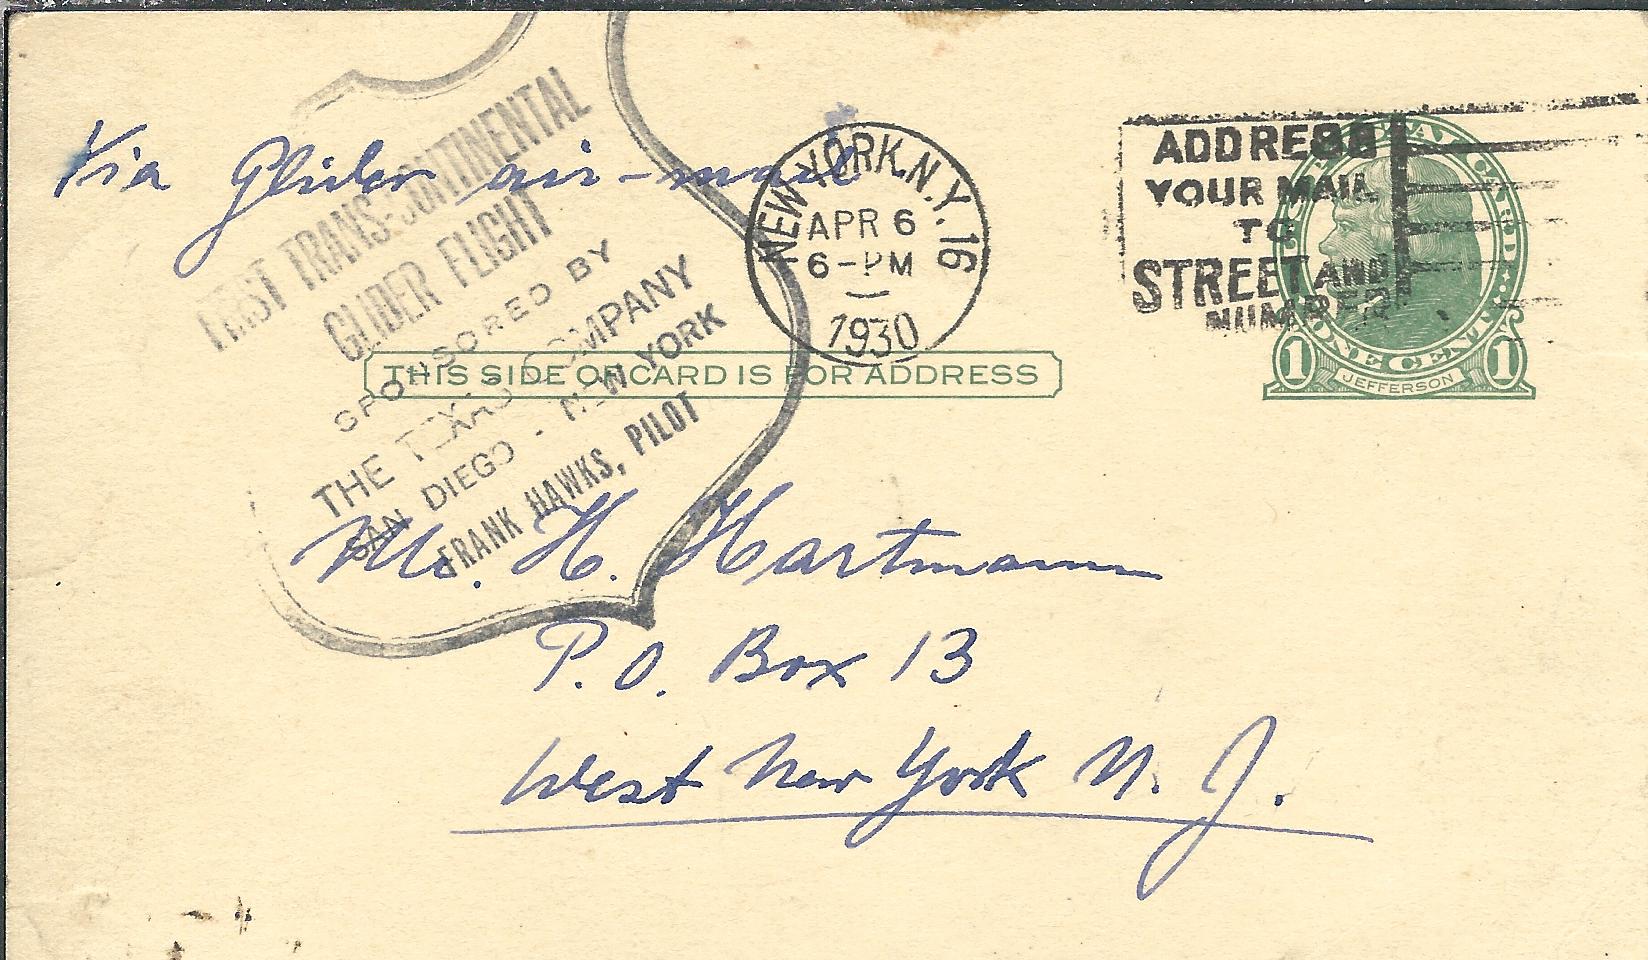 Via Glider air-mail
FIRST TRANS-CONTINENTAL
GLIDER FLIGHT
SPONSORED BY
THE TEXAS COMPANY
SAN DIEGO - NEW YORK
FRANK HAWKS, PILOT
NEW YORK, N.Y. 16
APR 6
6-PM
1930
ADDRESS
YOUR MAIL
TO
STREET AND
NUMBER
POSTAL CARD
ONE CENT
1 JEFFERSON 1
THIS SIDE OF CARD IS FOR ADDRESS
Mr. H. Hartmann
P.O. Box 13
West New York N. J.